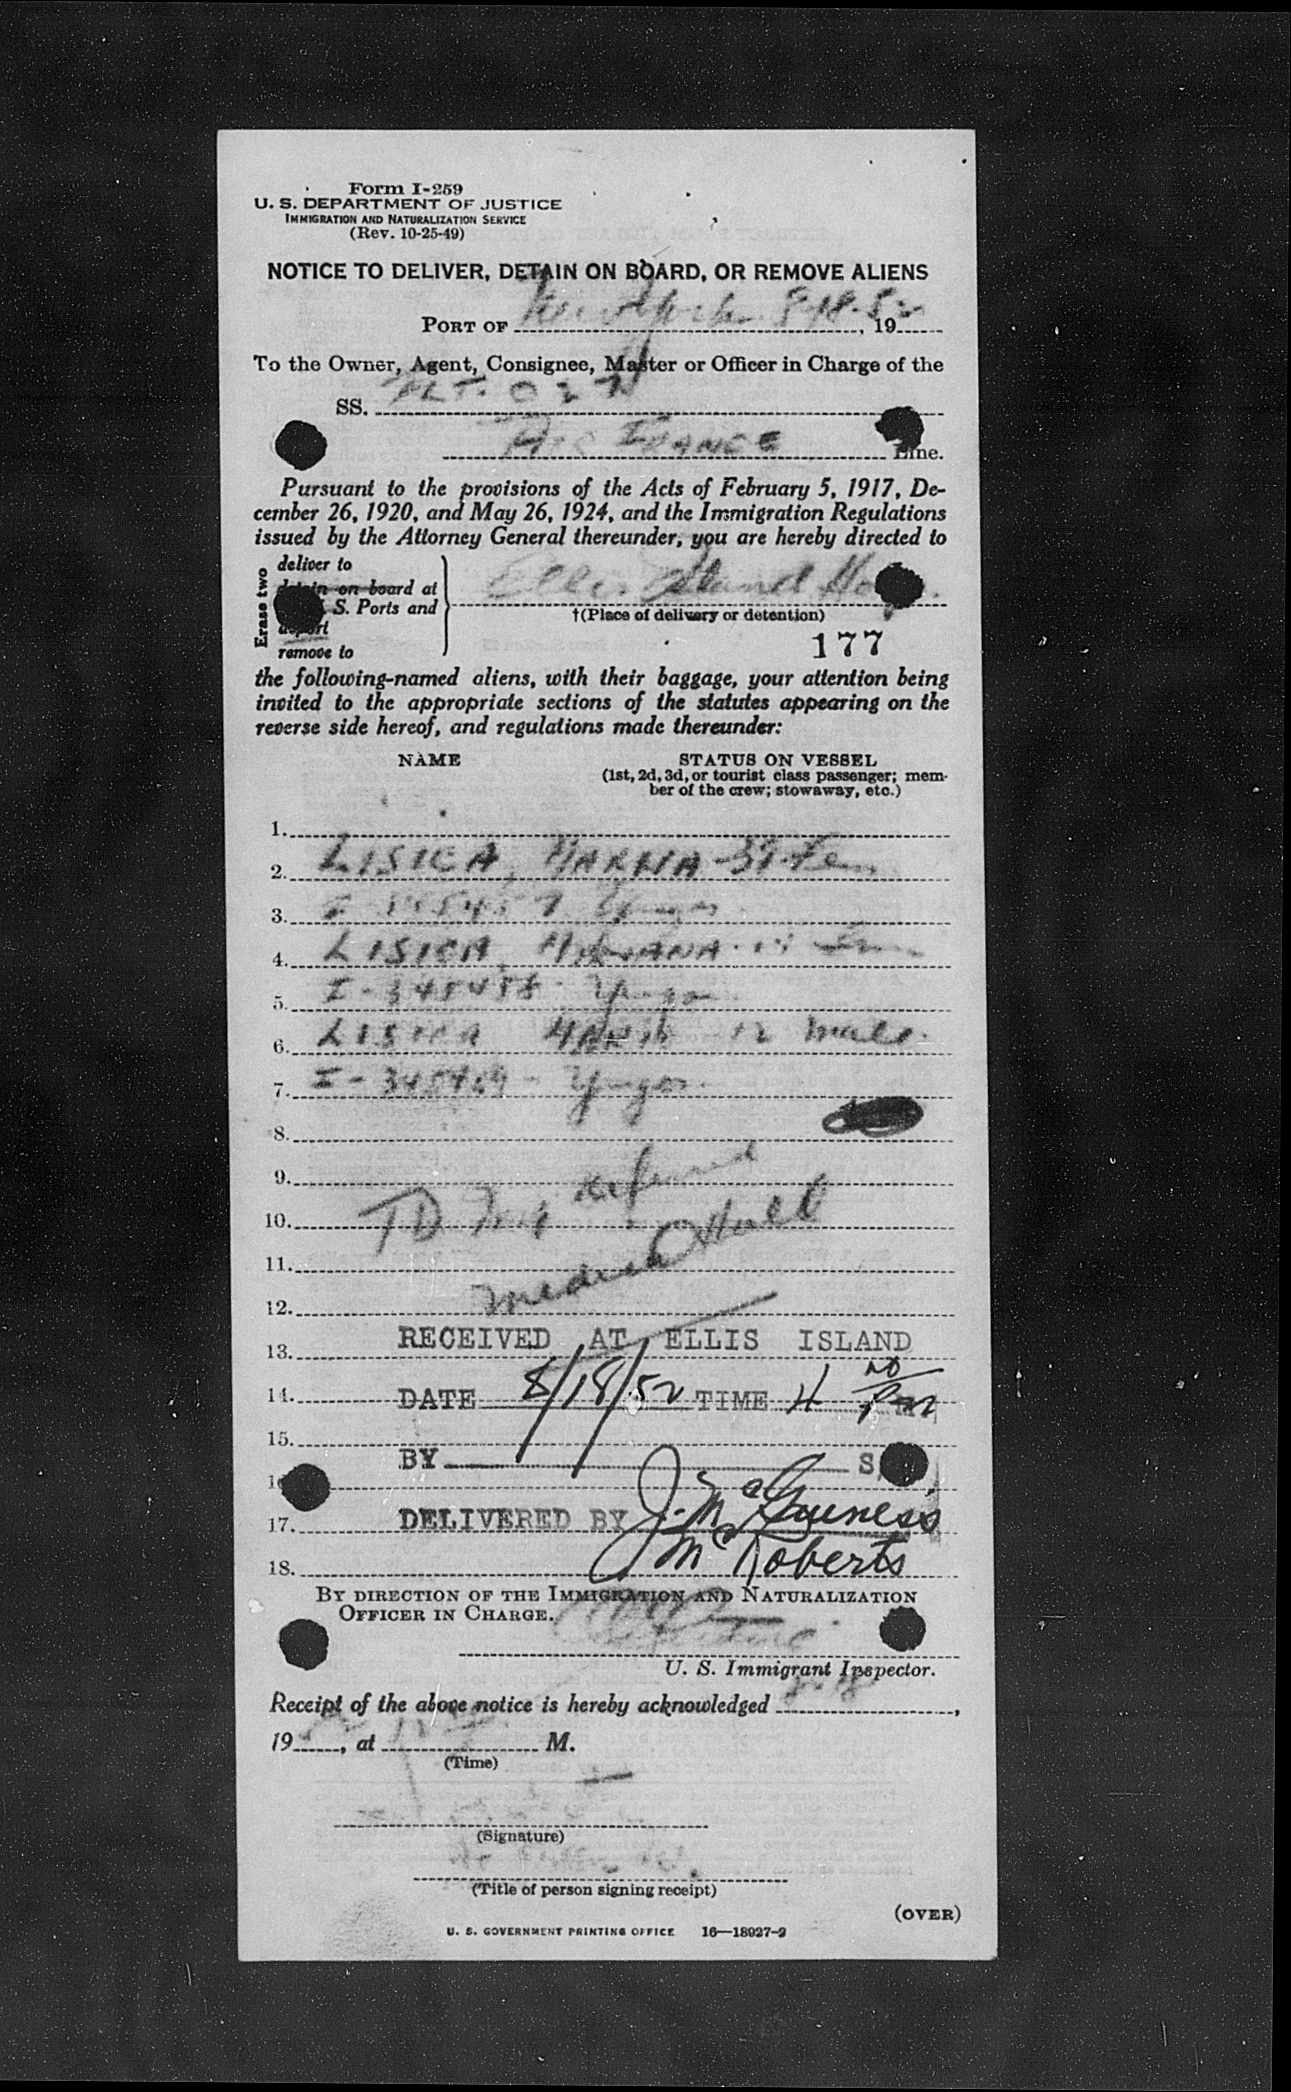 Form I-259
U. S. DEPARTMENT OF JUSTICE
IMMIGRATION AND NATURALIZATION SERVICE
(Rev. 10-25-49)
NOTICE TO DELIVER, DETAIN ON BOARD, OR REMOVE ALIENS
PORT OF New York 8-18-52, 19
To the Owner, Agent, Consignee, Master or Officer in Charge of the
SS. FLT. 027
AIR FRANCE Line.
Pursuant to the provisions of the Acts of February 5, 1917, De-
cember 26, 1920, and May 26, 1924, and the Immigration Regulations
issued by the Attorney General thereunder, you are hereby directed to
Erase two
deliver to
detain on board at
S. Ports and
deport
remove to
Ellis Island
†(Place of delivery or detention)
177
the following-named aliens, with their baggage, your attention being
invited to the appropriate sections of the statutes appearing on the
reverse side hereof, and regulations made thereunder:
NAME STATUS ON VESSEL
(1st, 2d, 3d, or tourist class passenger; mem-
ber of the crew; stowaway, etc.)
1.
2. LISICA, 39 Fem
3. I- Yugos.
4. LISICA,
5. I-345458- Yugos
6. LISICA 12 male.
7. I-345459- Yugos.
8.
9. deferred
10. TD
11. medical Hold
12.
RECEIVED AT ELLIS ISLAND
13.
14. DATE 8/18/52 TIME 4 PM
15.
BY S
17. DELIVERED BY J. McGuiness
18. McRoberts
BY DIRECTION OF THE IMMIGRATION AND NATURALIZATION
OFFICER IN CHARGE.
U. S. Immigrant Inspector.
Receipt of the above notice is hereby acknowledged 8-18,
19, at M.
(Time)
(Signature)
(Title of person signing receipt)
(OVER)
U. S. GOVERNMENT PRINTING OFFICE 16—18927-2